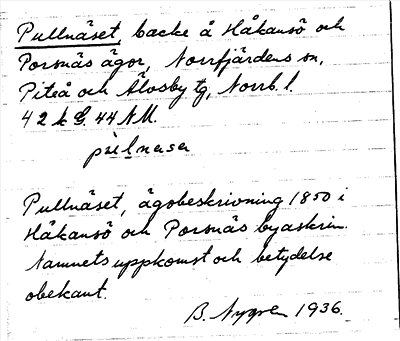 Pullnäset, backe å Håkansö och
Porsnäs ägor, Norrfjärdens sn,
Piteå och Älvsby tg, Norrb. l.
42 k G. 44 NM.
pùlnasa
Pullnäset, ägobeskrivning 1850 i
Håkansö och Porsnäs byaskrin.
Namnets uppkomst och betydelse
obekant.
B. Nygren 1936.